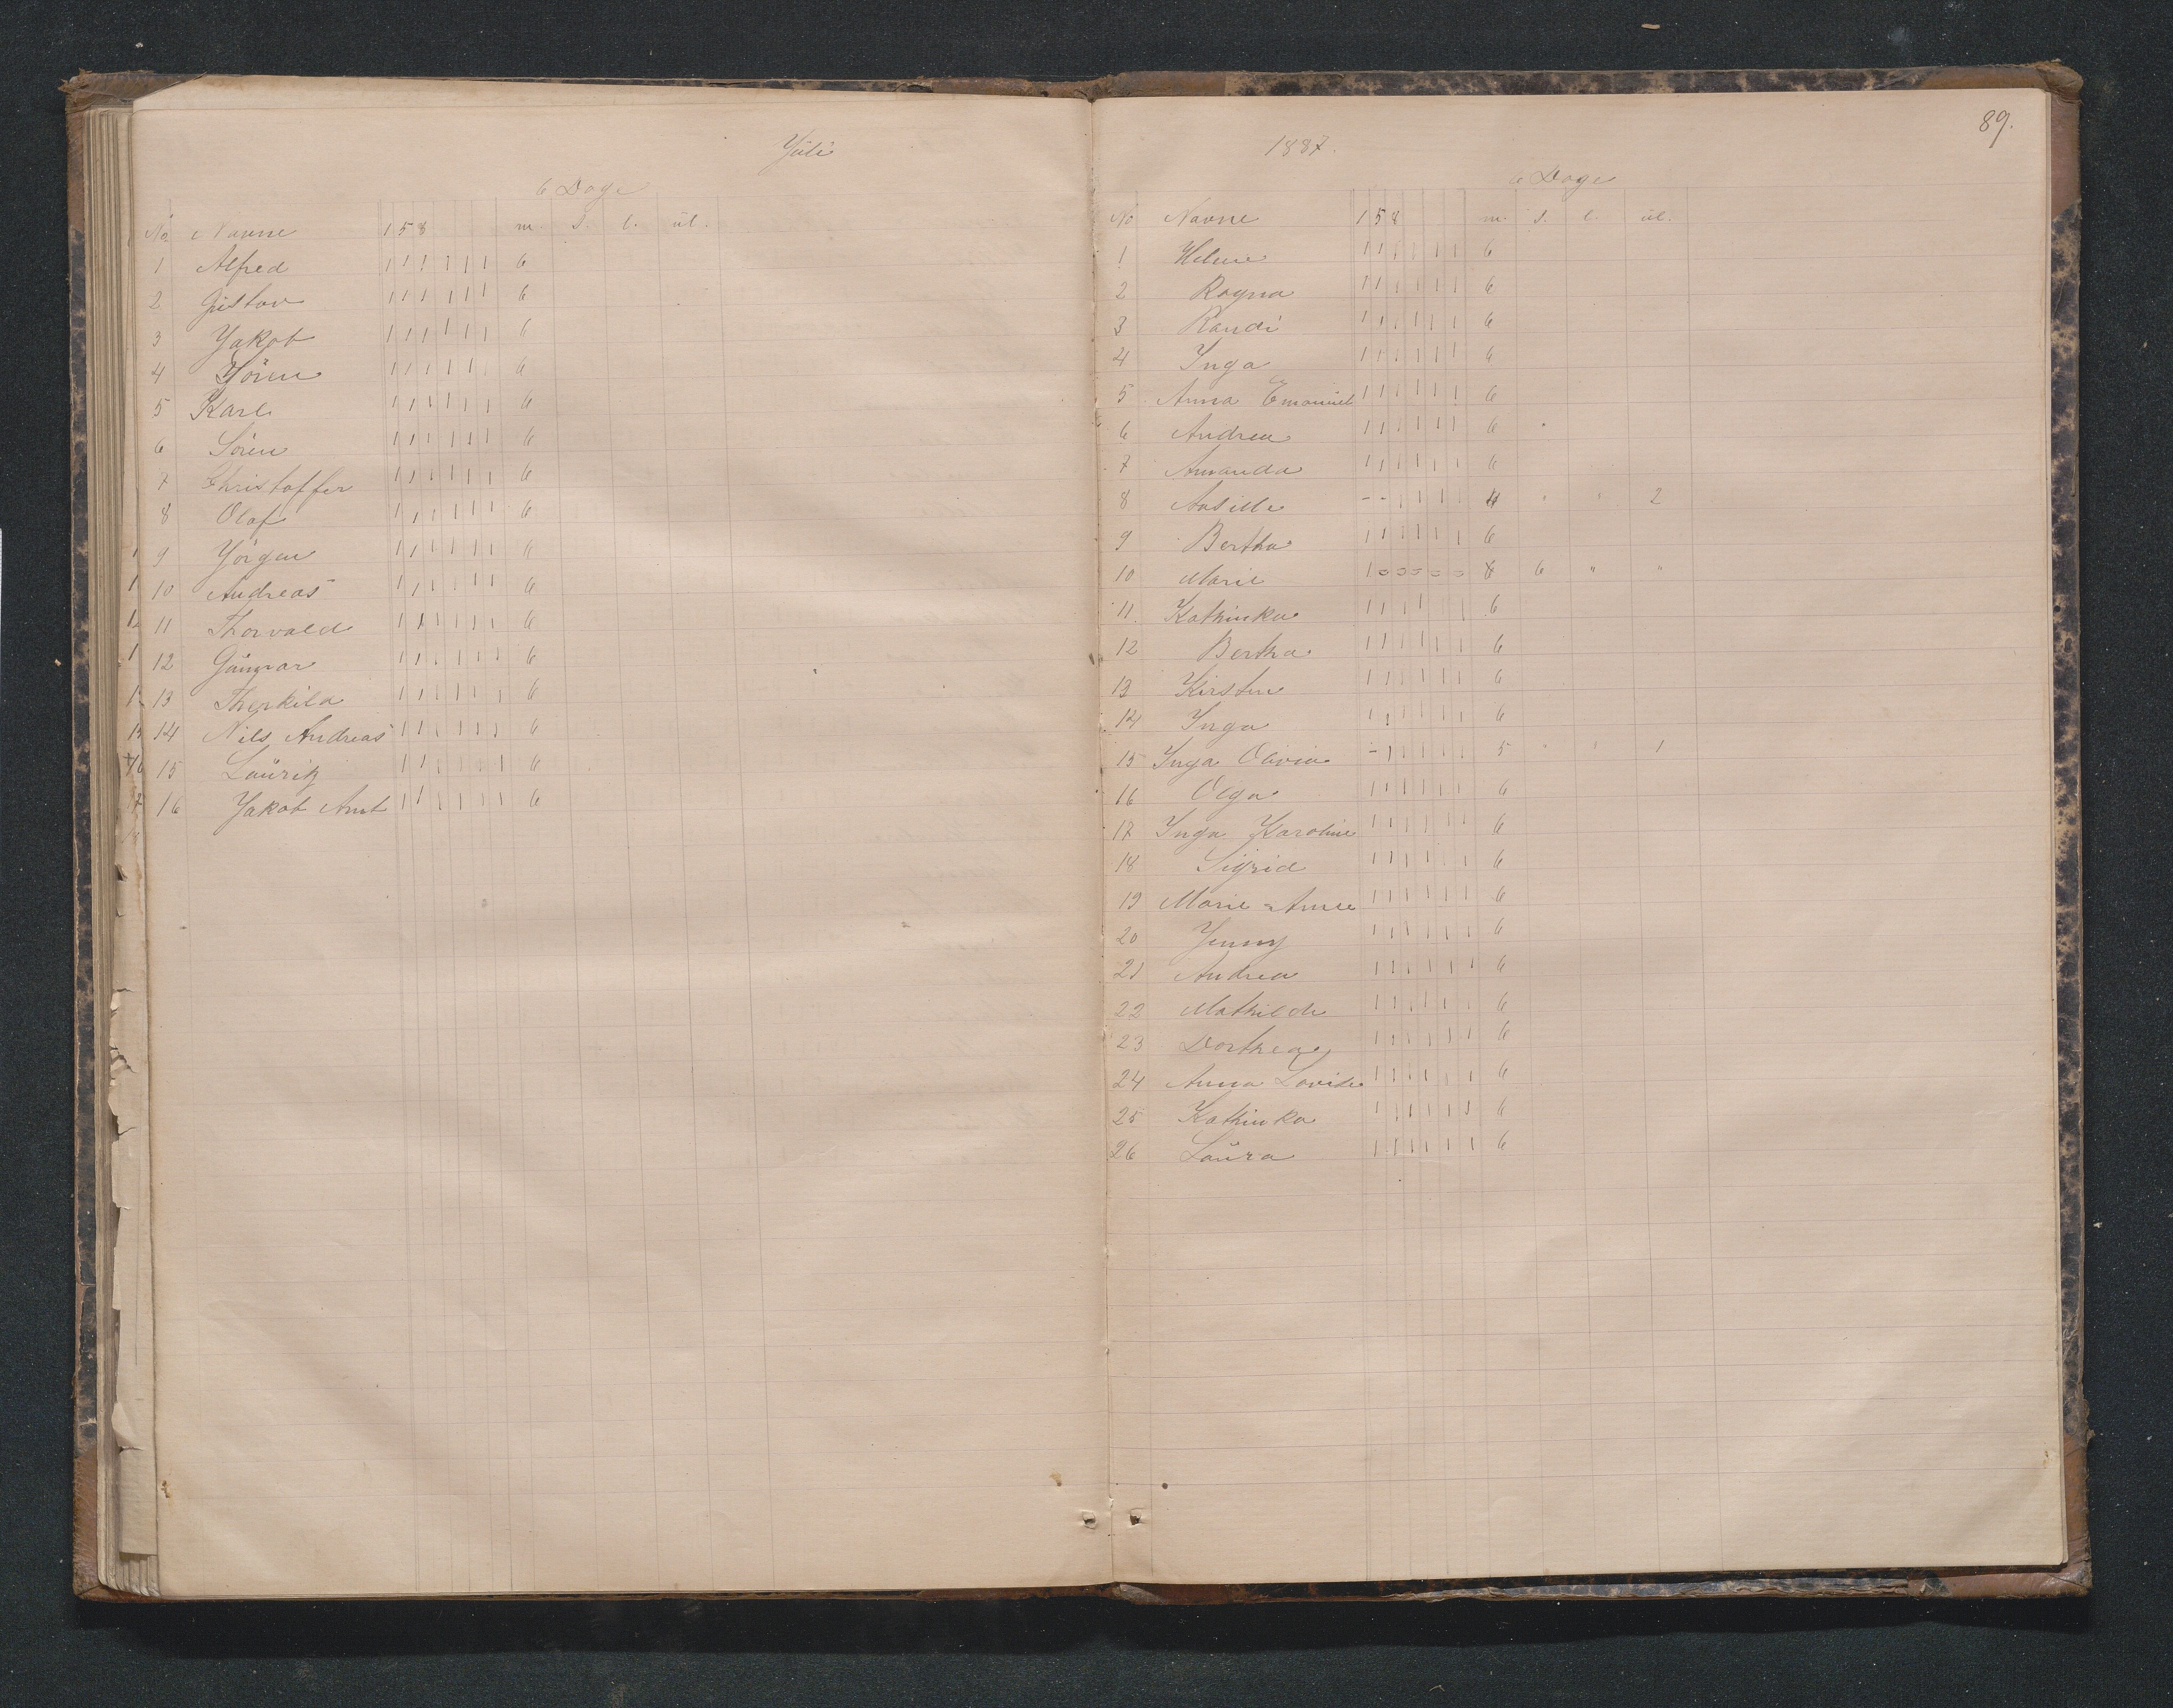 Juli
6 Dage
No Navne 1 5 8 m. s. l. ul.
1 Alfred 1 1 1 1 1 1 6
2 Gustav 1 1 1 1 1 1 6
3 Jakob 1 1 1 1 1 1 6
4 Jören 1 1 1 1 1 1 6
5 Karl 1 1 1 1 1 1 6
6 Sören 1 1 1 1 1 1 6
7 Christoffer 1 1 1 1 1 1 6
8 Olaf 1 1 1 1 1 1 6
9 Jörgen 1 1 1 1 1 1 6
10 Andreas 1 1 1 1 1 1 6
11 Thorvald 1 1 1 1 1 1 6
12 Gunnar 1 1 1 1 1 1 6
13 Therkild 1 1 1 1 1 1 6
14 Nils Andreas 1 1 1 1 1 1 6
15 Lauritz 1 1 1 1 1 1 6
16 Jakob Amt 1 1 1 1 1 1 6
89.
1887.
6 Dage
No Navne 1 5 8 m. s. l. ul.
1 Helene 1 1 1 1 1 1 6
2 Ragna 1 1 1 1 1 1 6
3 Randi 1 1 1 1 1 1 6
4 Inga 1 1 1 1 1 1 6
5 Anna Emanuel 1 1 1 1 1 1 6
6 Andrea 1 1 1 1 1 1 6
7 Amanda 1 1 1 1 1 1 6
8 - - 1 1 1 1 4 " " 2
9 Bertha 1 1 1 1 1 1 6
10 Marie 6 " "
11. Kathinka 1 1 1 1 1 1 6
12 Bertha 1 1 1 1 1 1 6
13 Kirsten 1 1 1 1 1 1 6
14 Inga 1 1 1 1 1 1 6
15 Inga Olivia - 1 1 1 1 1 5 " " 1
16 Olga 1 1 1 1 1 1 6
17 Inga Karoline 1 1 1 1 1 1 6
18 Sigrid 1 1 1 1 1 1 6
19 Marie = Anne 1 1 1 1 1 1 6
20 Jenny 1 1 1 1 1 1 6
21 Andrea 1 1 1 1 1 1 6
22 Mathilde 1 1 1 1 1 1 6
23 Dorthea 1 1 1 1 1 1 6
24 Anna Lovise 1 1 1 1 1 1 6
25 Kathinka 1 1 1 1 1 1 6
26 Laura 1 1 1 1 1 1 6